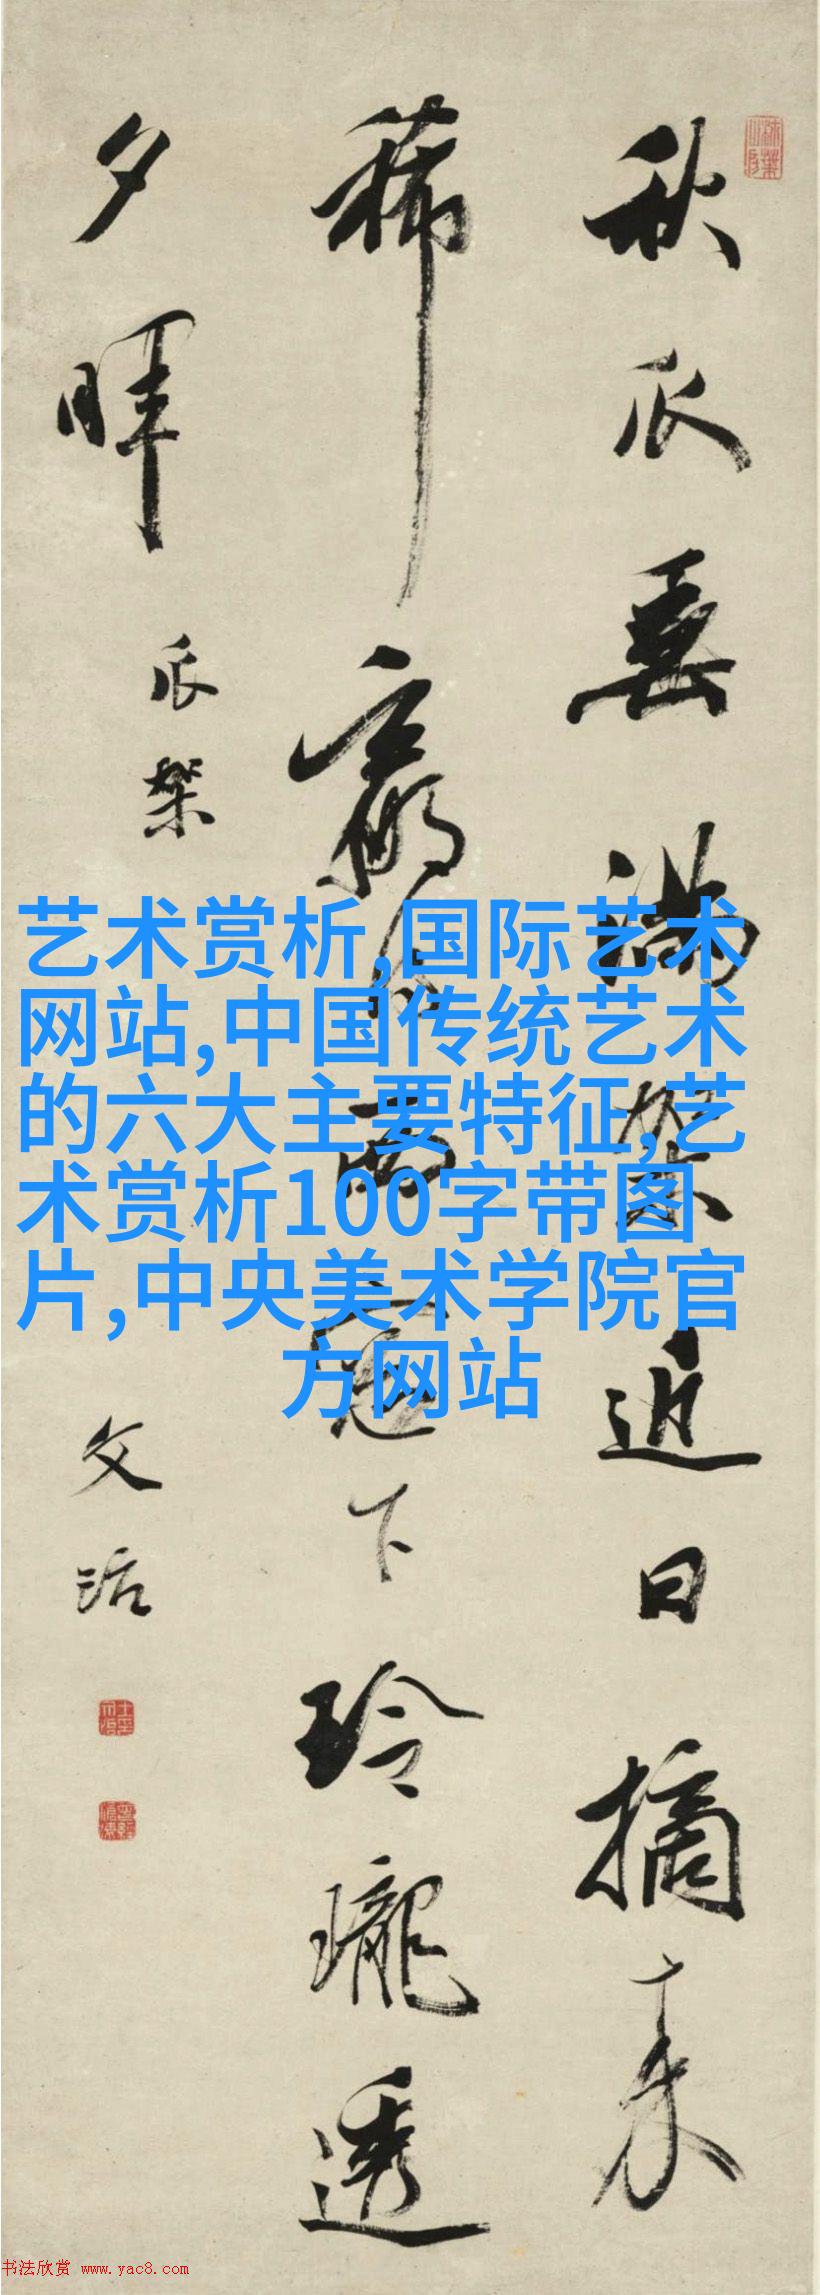 秋瓜垂滿架近日摘来
稀贏得西窓下玲瓏透
夕暉
瓜架
文治
艺术赏析,国际艺术
网站,中国传统艺术
的六大主要特征,艺
术赏析100字带图
片,中央美术学院官
方网站
书法欣赏 www.yac8.com